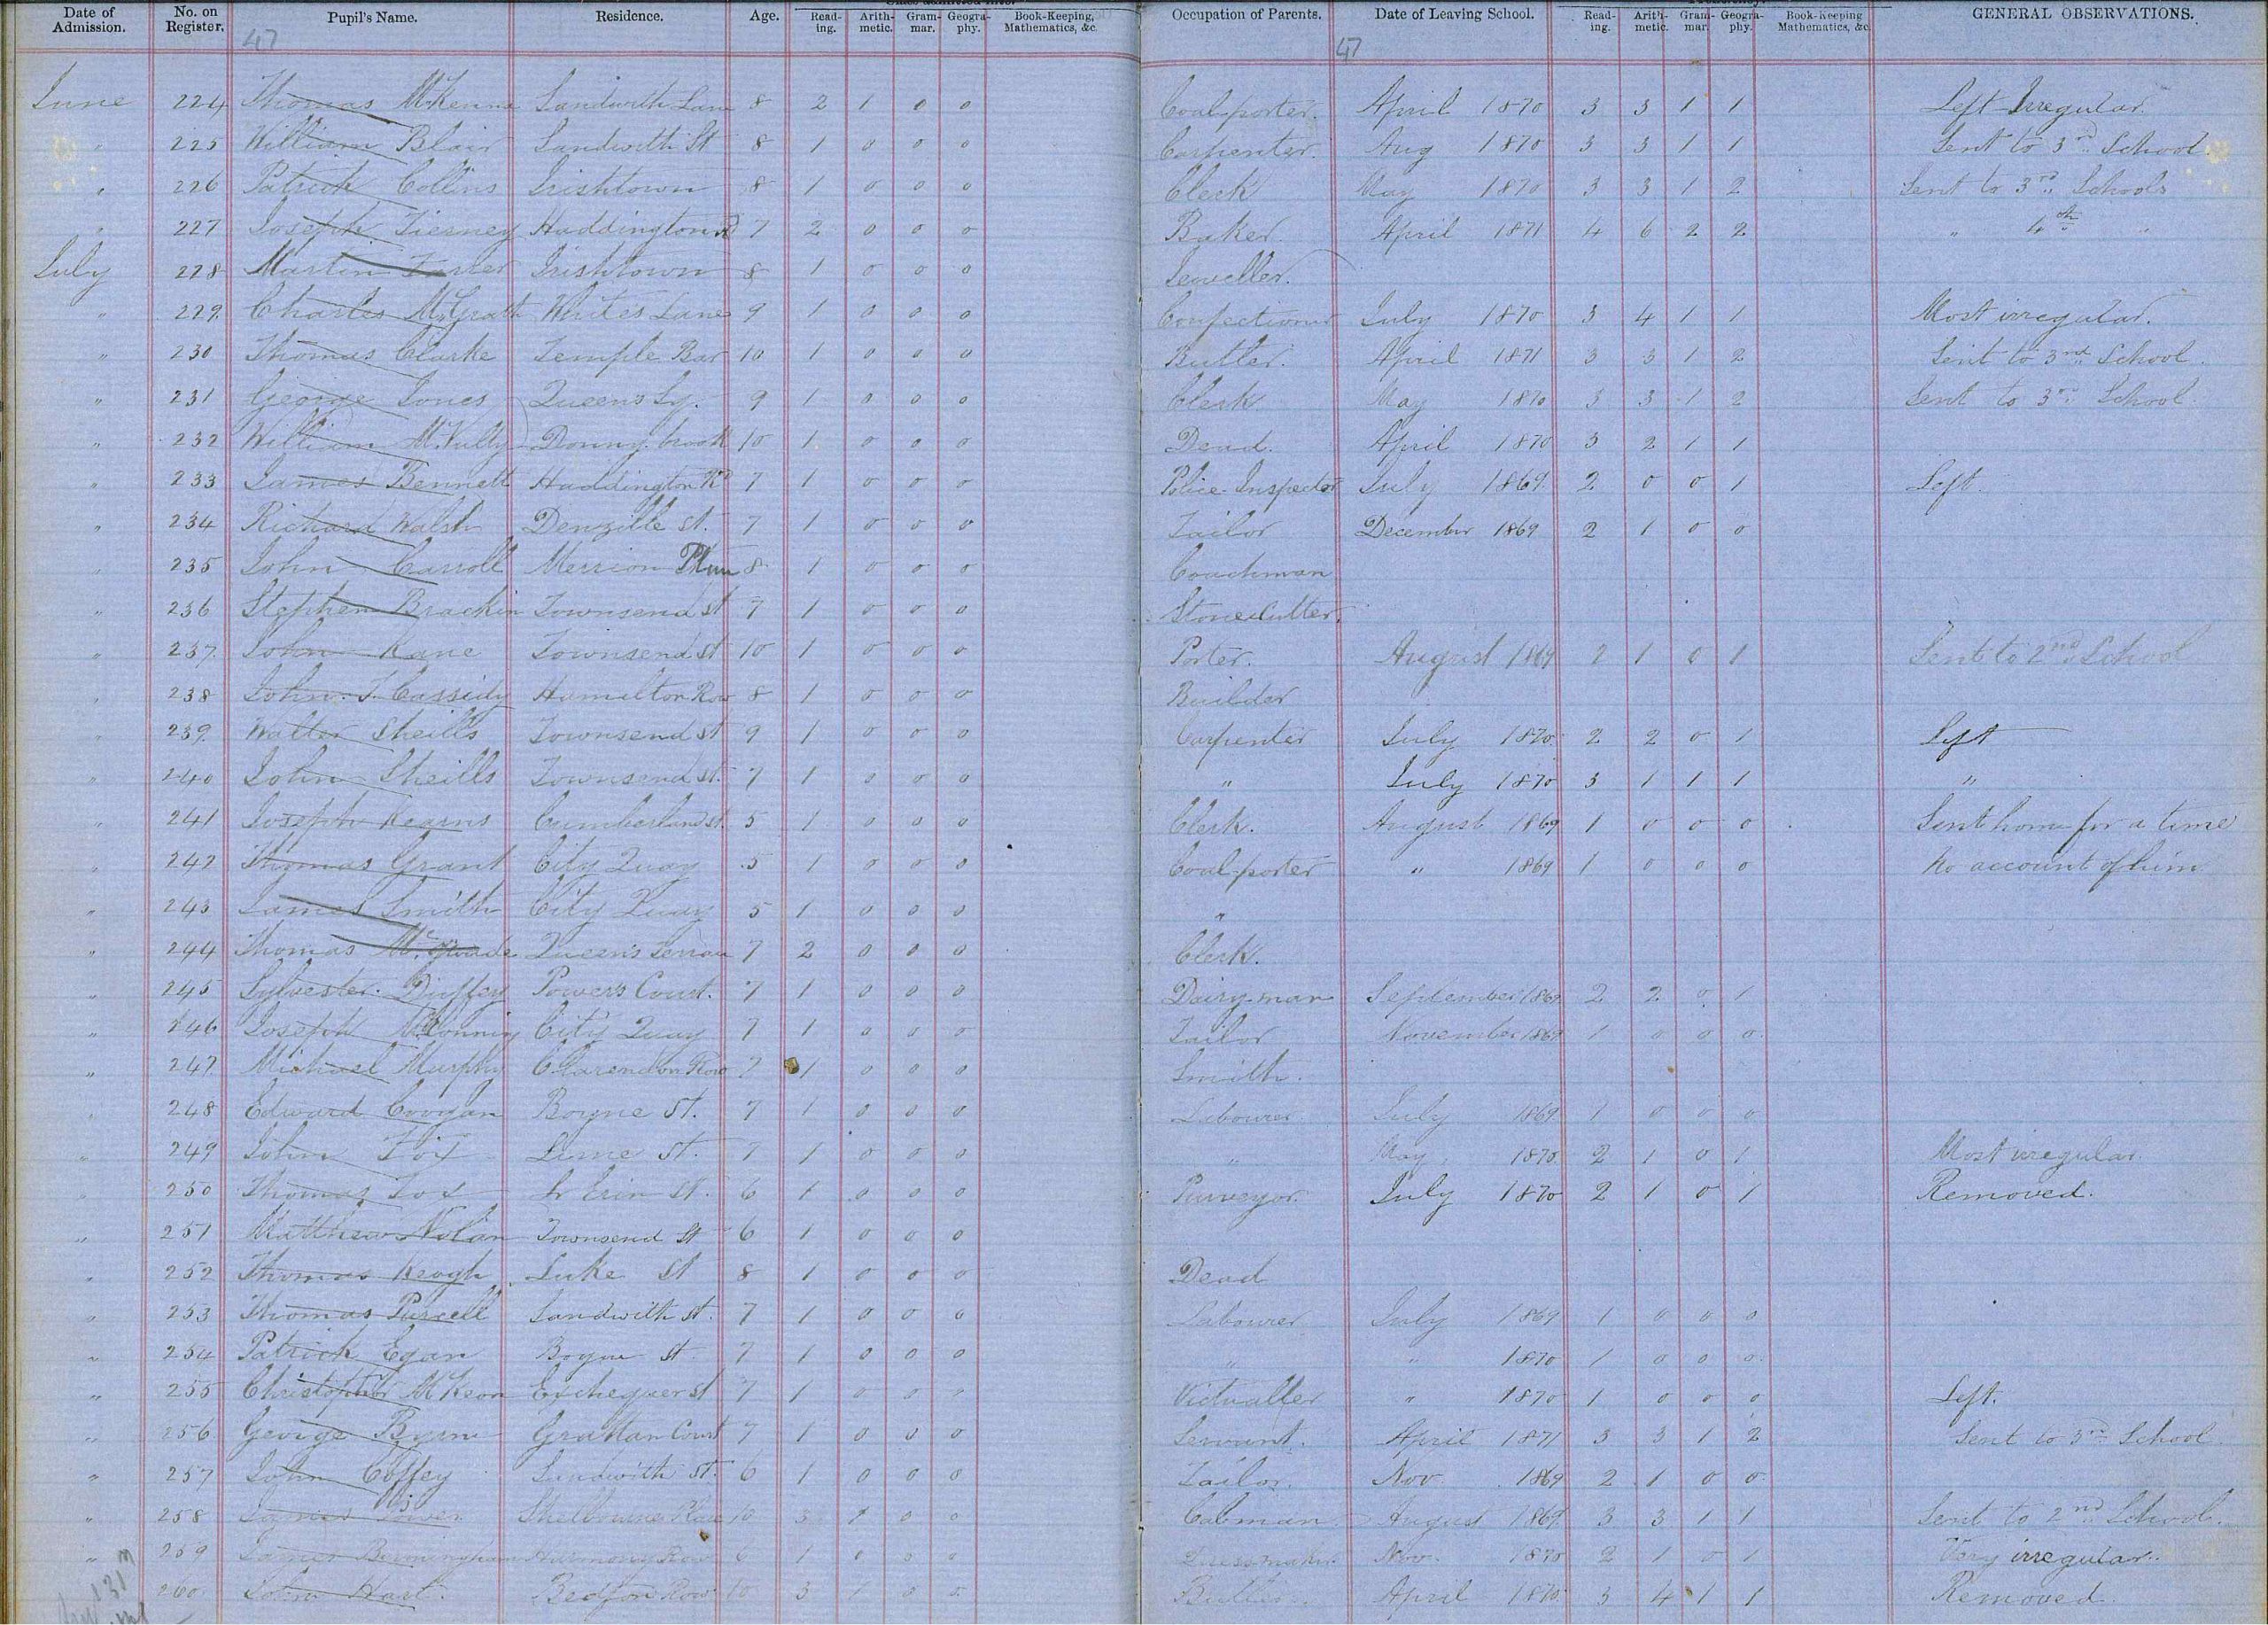 Date of Admission. No. on Register. Pupil's Name. Residence. Age. Reading. Arithmetic. Grammar. Geography. Book-Keeping, Mathematics, &c. Occupation of Parents. Date of Leaving School. Reading. Arithmetic. Grammar. Geography. Book-Keeping Mathematics, &c. GENERAL OBSERVATIONS.
47 47
June 224 Thomas McKenna Sandwith Lane 8 2 1 0 0 Coal-porter. April 1870 3 3 1 1 Left Irregular.
" 225 William Blair Sandwith St 8 1 0 0 0 Carpenter. Aug 1870 3 3 1 1 Sent to 3rd School.
" 226 Patrick Collins Irishtown 8 1 0 0 0 Clerk May 1870 3 3 1 2 Sent to 3rd Schools
" 227 Joseph Tierney Haddington Rd 7 2 0 0 0 Baker. April 1871 4 6 2 2 " 4th "
July 228 Martin Irishtown 8 1 0 0 0 Jeweller.
" 229 Charles McGrath Whites Lane 9 1 0 0 0 Confectioner July 1870 3 4 1 1 Most irregular.
" 230 Thomas Clarke Temple Bar 10 1 0 0 0 Butler. April 1871 3 3 1 2 Sent to 3rd School.
" 231 George Jones Queens Sq. 9 1 0 0 0 Clerk May 1870 3 3 1 2 Sent to 3rd School.
" 232 William McNully Donnybrook 10 1 0 0 0 Dead. April 1870 3 2 1 1
" 233 James Bennett Haddington Rd 7 1 0 0 0 Police Inspector July 1869. 2 0 0 1 Left.
" 234 Richard Walsh Denzille St. 7 1 0 0 0 Tailor December 1869 2 1 0 0
" 235 John Carroll Merrion 8 1 0 0 0 Coachman
" 236 Stephen Brackin Townsend St 7 1 0 0 0 Stonecutter.
" 237. John Kane Townsend St 10 1 0 0 0 Porter. August 1869 2 1 0 1 Sent to 2nd School
" 238 John. J. Cassidy Hamilton Row 8 1 0 0 0 Builder
" 239. Walter Sheills Townsend St 9 1 0 0 0 Carpenter July 1870. 2 2 0 1 Left
" 240 John Sheills Townsend St. 7 1 0 0 0 " July 1870 3 1 1 1 "
" 241 Joseph Kearns Cumberland St. 5 1 0 0 0 Clerk. August 1869 1 0 0 0 Sent home for a time
" 242 Thomas Grant City Quay 5 1 0 0 0 Coal-porter " 1869 1 0 0 0 No account of him
" 243 James Smith City Quay 5 1 0 0 0 "
" 244 Thomas Queen's Terrace 7 2 0 0 0 Clerk.
" 245 Sylvester Duffey Powers Court. 7 1 0 0 0 Dairy-man September 1869 2 2 0 1
" 246 Joseph City Quay 7 1 0 0 0 Tailor November 1869 1 0 0 0
" 247 Michael Murphy Clarendon Row 7 1 0 0 0 Smith.
" 248 Edward Coogan Boyne St. 7 1 0 0 0 Labourer July 1869. 1 0 0 0
" 249 John Fox Lime St. 7 1 0 0 0 " May 1870. 2 1 0 1 Most irregular.
" 250 Thomas Fox Lr Erin St. 6 1 0 0 0 Purveyor. July 1870 2 1 0 1 Removed.
" 251 Matthew Nolan Townsend St 6 1 0 0 0
" 252 Thomas Keogh Luke St 8 1 0 0 0 Dead
" 253 Thomas Purcell Sandwith St. 7 1 0 0 0 Labourer July 1869 1 0 0 0
" 254 Patrick Egan Boyne St 7 1 0 0 0 " " 1870 1 0 0 0
" 255 Christopher McKeon Exchequer St 7 1 0 0 Victualler " 1870 1 0 0 0 Left.
" 256 George Byrne Grattan Court 7 1 0 0 0 Servant. April 1871 3 3 1 2 Sent to 3rd School.
" 257 John Coffey Sandwith St. 6 1 0 0 0 Tailor. Nov. 1869 2 1 0 0
" 258 James Power Shelbourne Place 10 3 1 0 0 Cabman August 1869. 3 3 1 1 Sent to 2nd School.
" 259 James Birmingham Harmony Row 6 1 0 0 0 Dressmaker. Nov. 1870 2 1 0 1 Very irregular.
260 John Hart. Row 10 3 1 0 0 Butler. April 1870. 3 4 1 1 Removed.